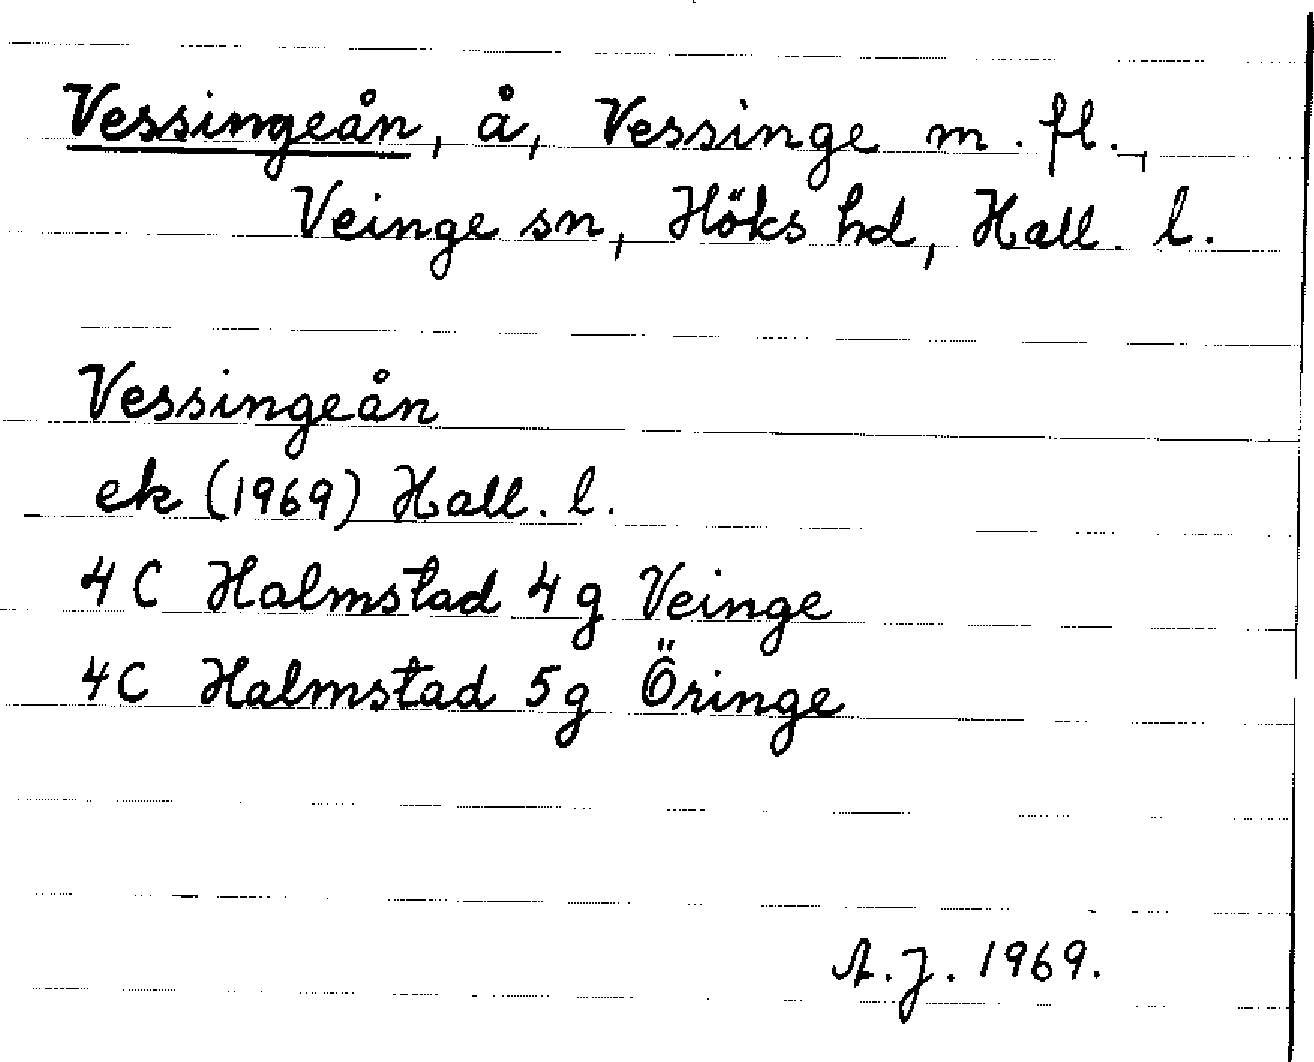 Vessingeån, å, Vessinge m. fl.,
Veinge sn, Höks hd, Hall. l.
Vessingeån
ek (1969) Hall. l.
4C Halmstad 4g Veinge
4C Halmstad 5g Öringe
A.J. 1969.